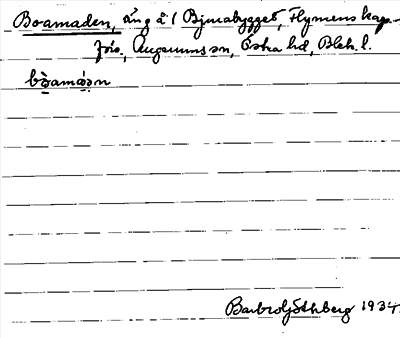 Boamaden, äng å 1 Bjurabygget, Flymens kap-
förs., Augerums sn, Östra hd, Blek. l.
Barbro Göthberg 1934.